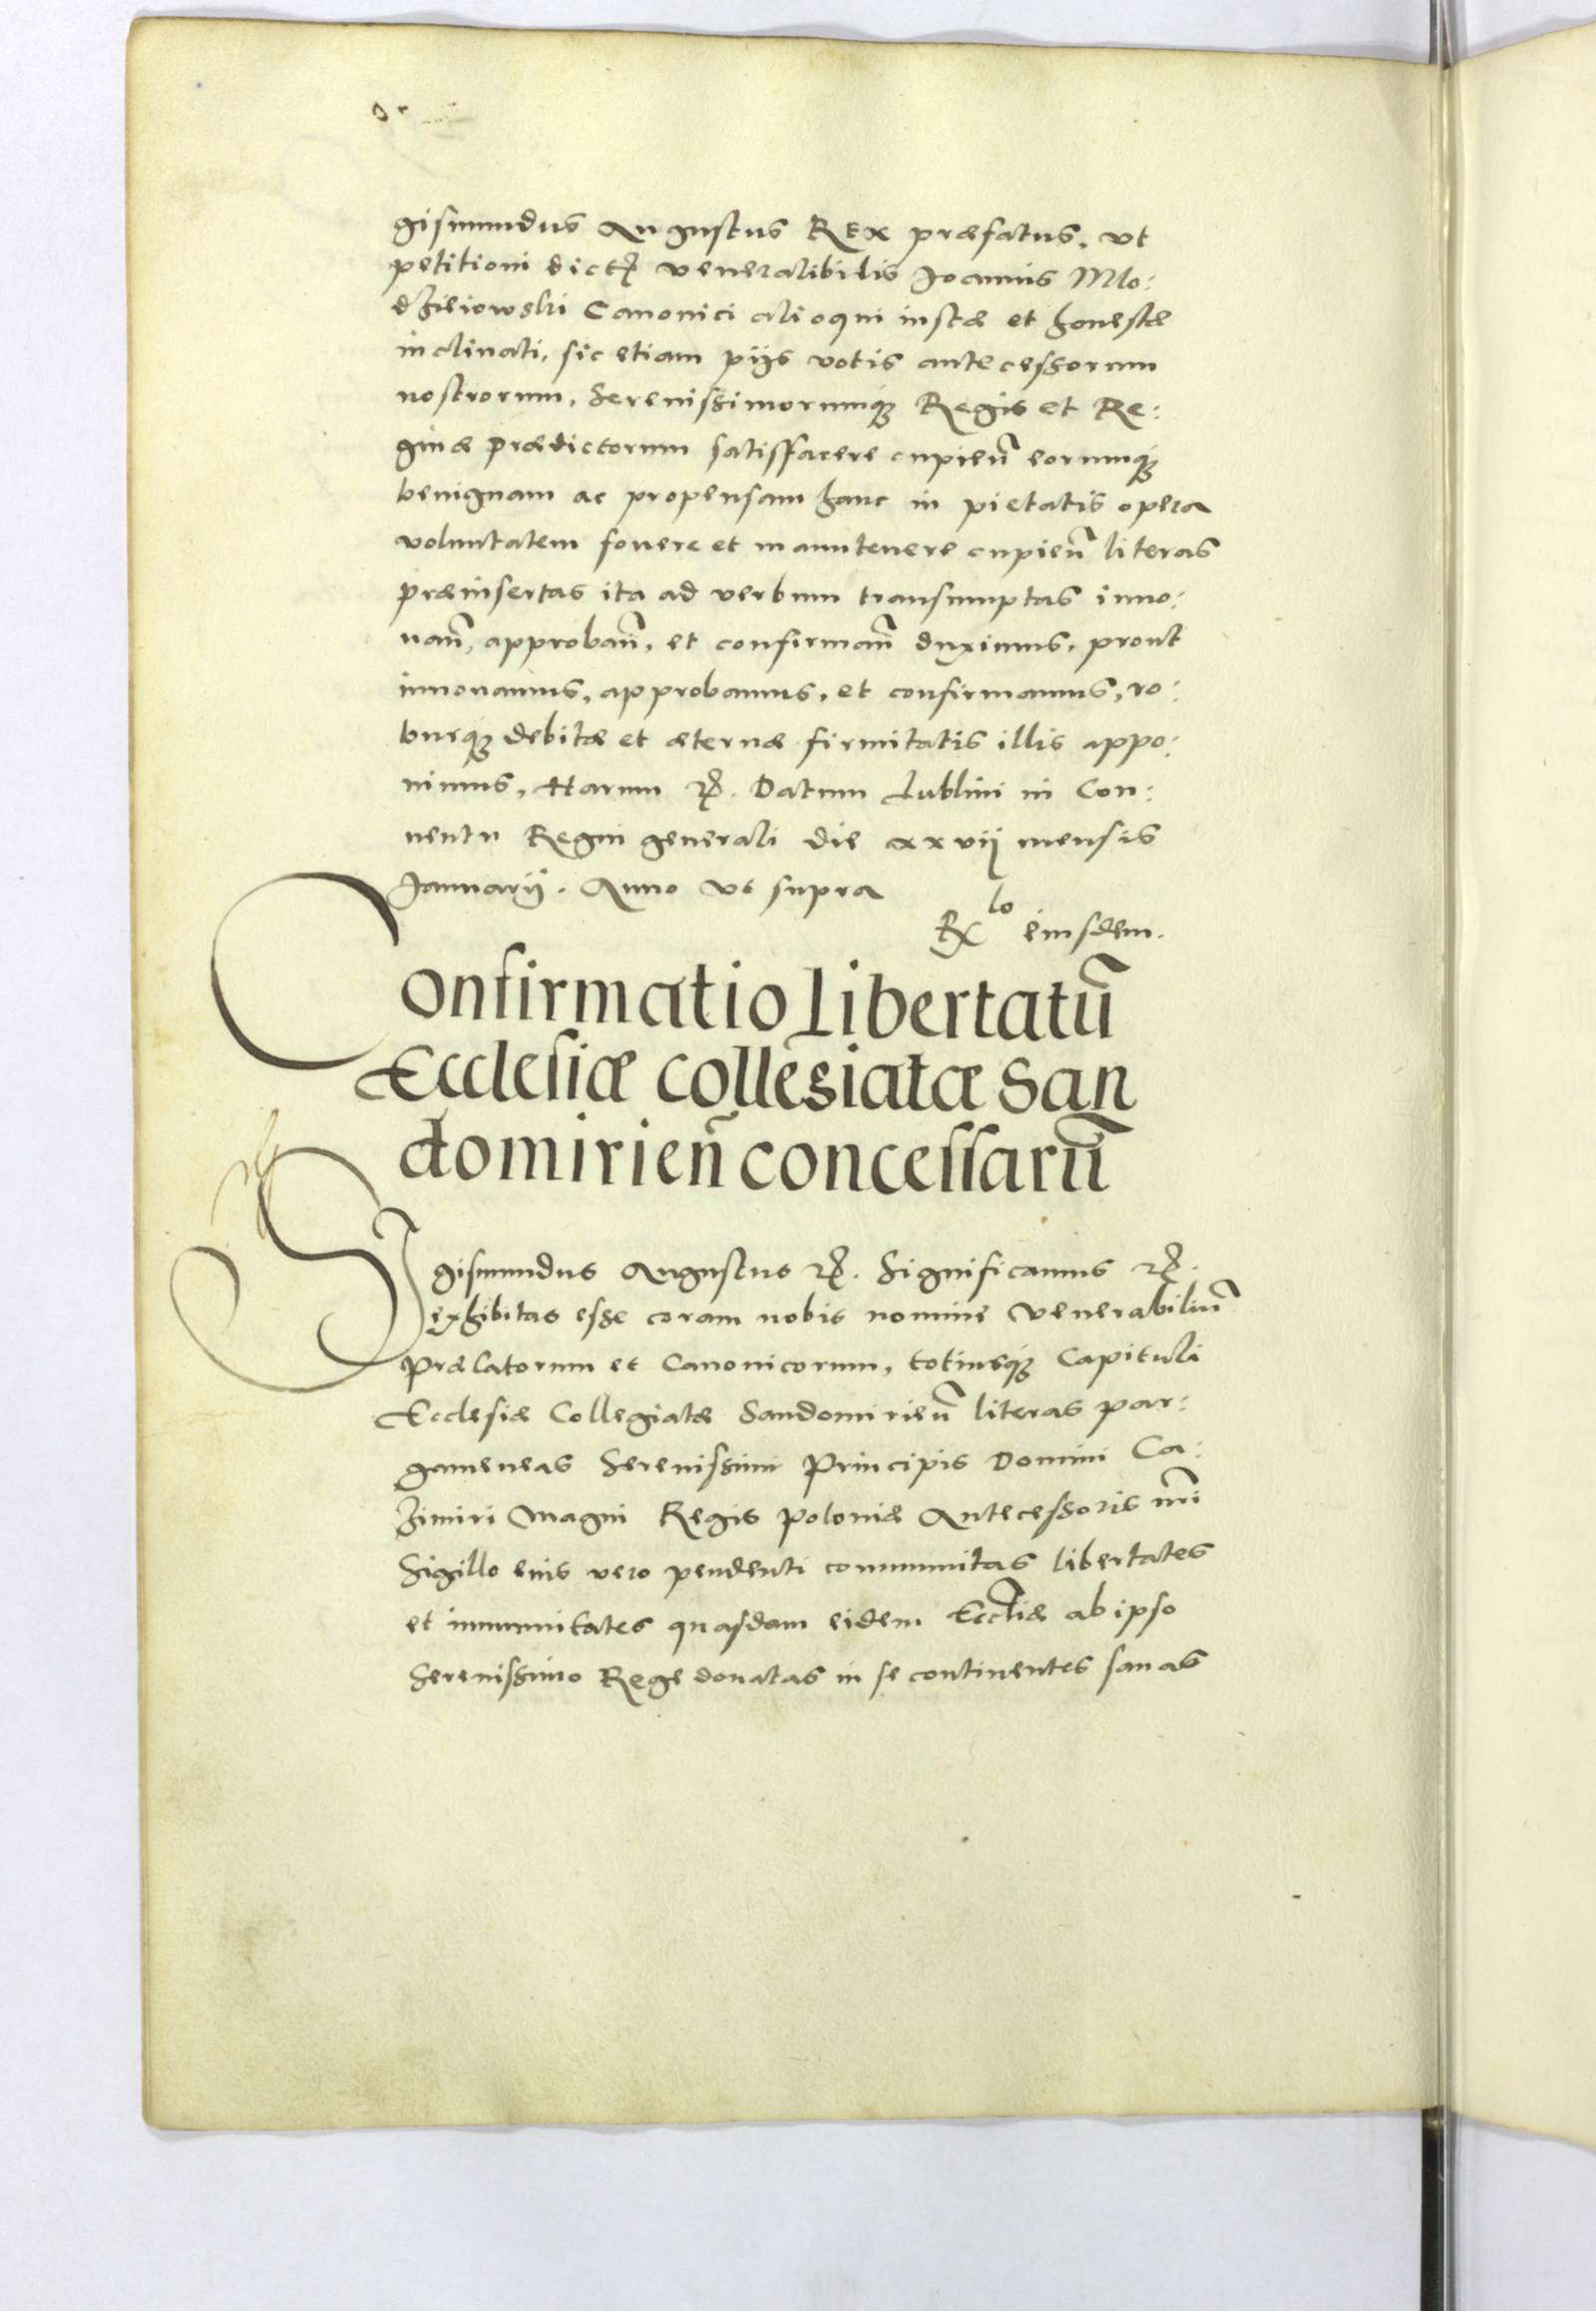 gismundus Augustus REx præfatus, vt
petitioni dicti venerabilis Joannis Mlo:
dzieiowski Canonici alioqui iustæ et honestæ
inclinati, sic etiam pijs votis antecessorum
nostrorum, Serenissimorumq₃ Regis et Re:
ginæ prædictorum satisffacere cupien̄ eorumq₃
benignam ac propensam hanc in pietatis opera
voluntatem fouere et manutenere cupien̄ literas
præinsertas ita ad verbum transumptas inno:
uan̄, approban̄, et confirman̄ duximus, prout
innouamus, approbamus, et confirmamus, ro:
burq₃ debitæ et æternæ firmitatis illis appo:
nimus, Harum ꝛc̄. Datum Lublini in Con:
uentu Regni generali die xxvij mensis
Januarij. Anno vt supra
R^lo eiusdem.
Confirmatio Libertatū
Ecclesiæ collegiatæ San
domirien̄ concessarū
SIgismundus Augustus ꝛc̄. Significamus ꝛc̄.
exhibitas esse coram nobis nomine Venerabiliū
Prælatorum et Canonicorum, totiusq₃ Capituli
Ecclesiæ Collegiatæ Sandomirien̄ literas par:
gameneas Serenissimi Principis Domini Ca:
zimiri Magni Regis Poloniæ Antecessoris nr̄i
Sigillo eius vero pendenti communitas libertates
et immunitates quasdam eidem Eccl̄iæ ab ipso
Serenissimo Rege donatas in se continentes sanas